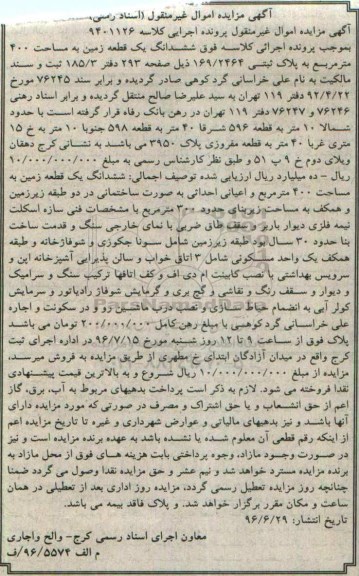 آگهی مزایده اموال غیرمنقول (اسناد رهنی)
آگهی مزایده اموال غیرمنقول پرونده اجرایی کلاسه ۹۴۰۱۱۲۶
بموجب پرونده اجرائی کلاسه فوق ششدانگ یک قطعه زمین به مساحت ۴۰۰
مترمربع به پلاک ثبتی ۱۶۹/۲۴۶۴ ذیل صفحه ۲۹۳ دفتر ۱۸۵/۳ ثبت و سند
مالکیت به نام علی خراسانی گرد کوهی صادر گردیده و برابر سند ۷۶۲۴۵ مورخ
۹۲/۴/۲۲ دفتر ۱۱۹ تهران به سید علیرضا صالح منتقل گردیده و برابر اسناد رهنی
۷۶۲۴۶ و ۷۶۲۴۷ دفتر ۱۱۹ تهران در رهن بانک رفاه قرار گرفته است با حدود
شمالا ۱۰ متر به قطعه ۵۹۶ شرقا ۴۰ متر به قطعه ۵۹۸ جنوبا ۱۰ متر به خ ۱۵
متری غربا ۴۰ متر به قطعه مفروزی پلاک ۳۹۵۰ می باشد به نشانی کرج دهقان
ویلای دوم خ ۹ پ ۵۱ و طبق نظر کارشناس رسمی به مبلغ ۱۰/۰۰۰/۰۰۰/۰۰۰
ریال – ده میلیارد ریال ارزیابی شده توصیف اجمالی: ششدانگ یک قطعه زمین به
مساحت ۴۰۰ مترمربع و اعیانی احداثی به صورت ساختمانی در دو طبقه زیرزمین
و همکف به مساحت زیربنای حدود ۳۰۰ مترمربع با مشخصات فنی سازه اسکلت
نیمه فلزی دیوار باربر سقف طاق ضربی با نمای خارجی سنگ و قدمت ساخت
بنا حدود ۳۰ سال بود طبقه زیرزمین شامل سونا جکوزی و شوفاژخانه و طبقه
همکف یک واحد مسکونی شامل ۳ اتاق خواب و سالن پذیرایی آشپزخانه اپن و
سرویس بهداشتی با نصب کابینت ام دی اف و کف اتاقها ترکیب سنگ و سرامیک
و دیوار و سقف رنگ و نقاشی و گچ بری و گرمایش شوفاژ رادیاتور و سرمایش
کولر آبی به انضمام حیاط سازی و نصب درب ماشین رو و در سکونت و اجاره
علی خراسانی گرد کوهسی با مبلغ رهن کامل ۲۰۰/۰۰۰/۰۰۰ تومان می باشد.
پلاک فوق از ساعت ۹ تا ۱۲ روز شنبه مورخ ۹۶/۷/۱۵ در اداره اجرای ثبت
کرج واقع در میدان آزادگان ابتدای خ مطهری از طریق مزایده به فروش میرسد.
مزایده از مبلغ ۱۰/۰۰۰/۰۰۰/۰۰۰ ریال شروع و به بالاترین قیمت پیشنهادی
نقدا فروخته می شود. لازم به ذکر است پرداخت بدهیهای مربوط به آب، برق، گاز
اعم از حق انشعاب و یا حق اشتراک و مصرف در صورتی که مورد مزایده دارای
آنها باشد و نیز بدهیهای مالیاتی و عوارض شهرداری و غیره تا تاریخ مزایده اعم
از اینکه رقم قطعی آن معلوم شده یا نشده باشد به عهده برنده مزایده است و نیز
در صورت وجود مازاد، وجوه پرداختی بابت هزینه های فوق از محل مازاد به
برنده مزایده مسترد خواهد شد و نیم عشر و حق مزایده نقدا وصول می گردد ضمنا
چنانچه روز مزایده تعطیل رسمی گردد، مزایده روز اداری بعد از تعطیلی در همان
ساعت و مکان مقرر برگزار خواهد شد. و پلاک فاقد بیمه می باشد.
تاریخ انتشار: ۹۶/۶/۲۹
معاون اجرای اسناد رسمی کرج- والح واجاری
م الف ۹۶/۵۵۷۴/ف